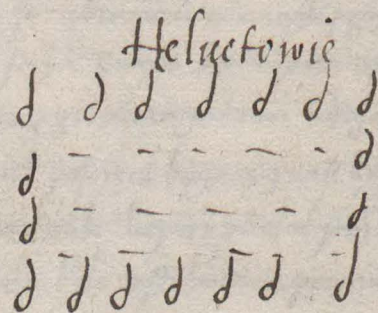 Heluetowie
d d d d d d d
d - - - - - d
d - - - - d
d - d - d d d - d - d